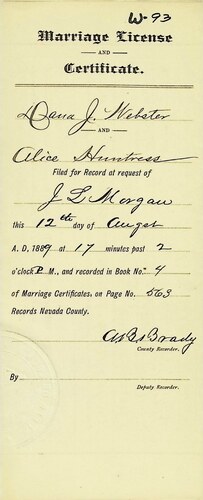 W-93
Marriage License
AND
Certificate.
Dana J. Webster
AND
Alice Huntress
Filed for Record at request of
J L Morgan
this 12th day of Augst
A. D. 1889 at 17 minutes past 2
o'clock P. M., and recorded in Book No. 4
of Marriage Certificates, on Page No. 563
Records Nevada County.
Brady
County Recorder.
By
Deputy Recorder.